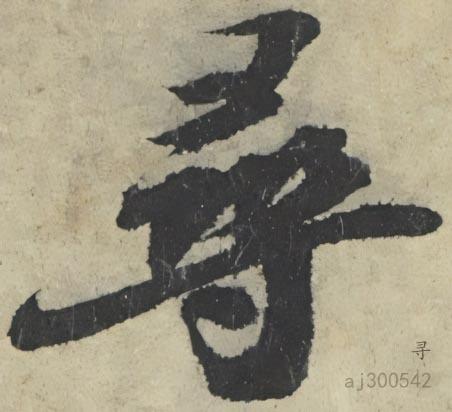 尋
寻
aj300542